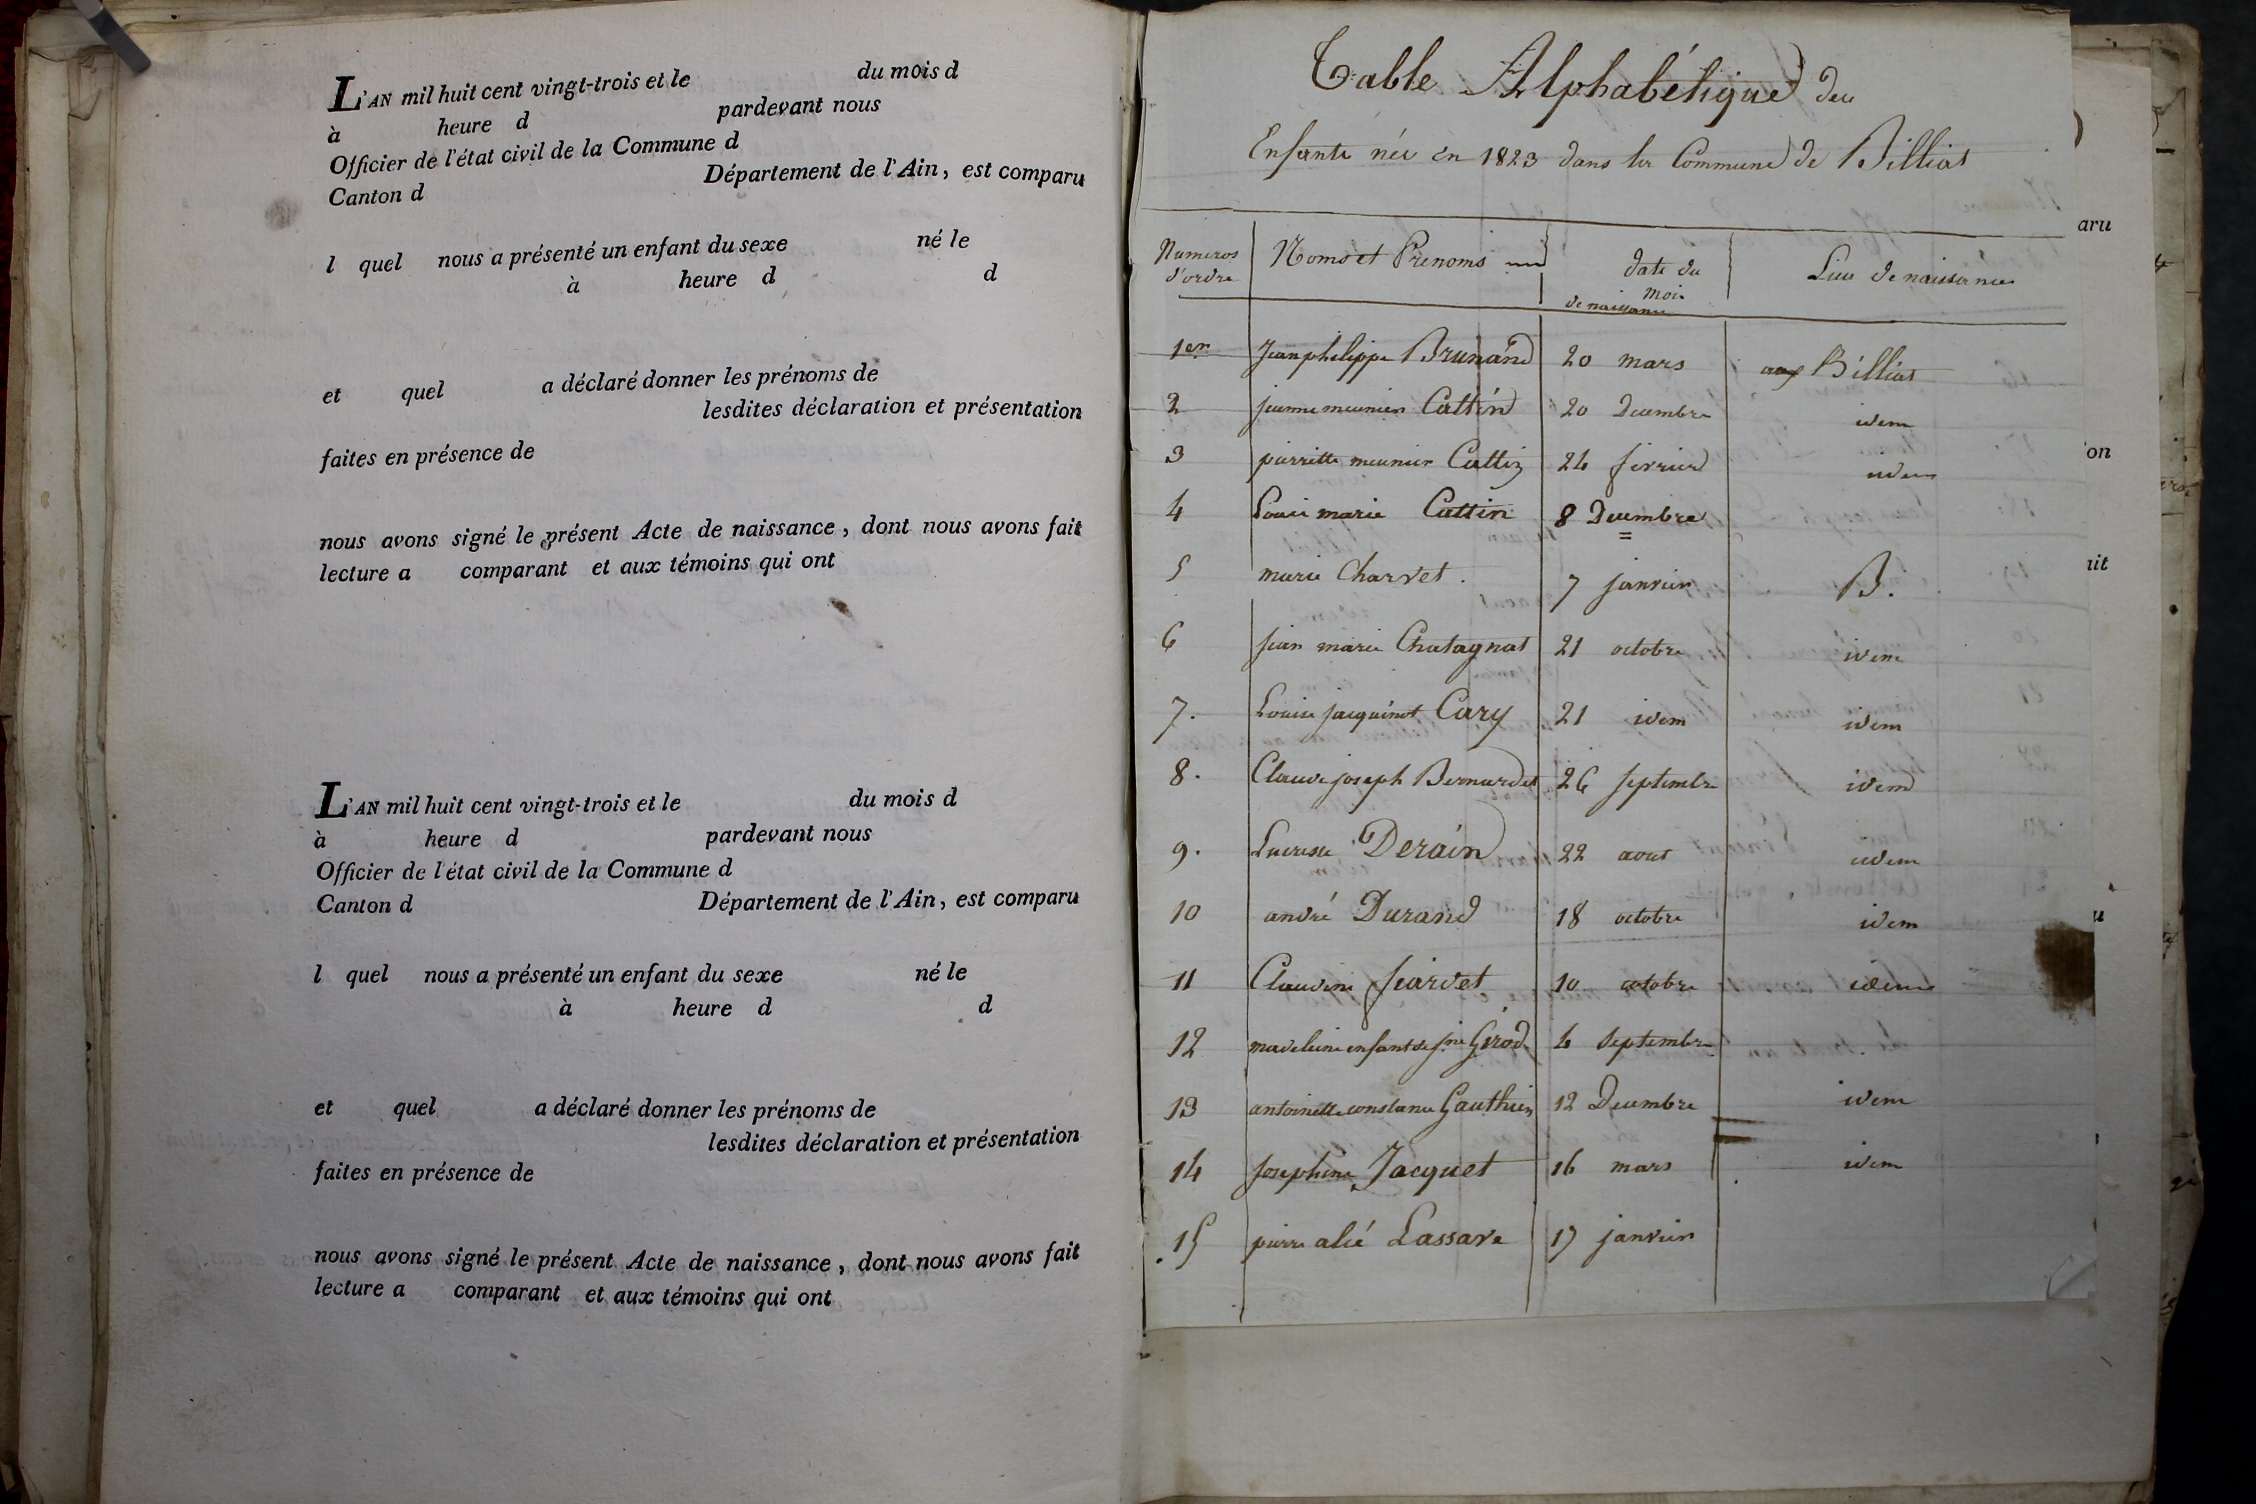 L'AN mil huit cent vingt-trois et le du mois d
à heure d pardevant nous
Officier de l'état civil de la Commune d
Canton d Département de l'Ain, est comparu
l quel nous a présenté un enfant du sexe né le
à heure d d
et quel a déclaré donner les prénoms de
lesdites déclaration et présentation
faites en présence de
nous avons signé le présent Acte de naissance, dont nous avons fait
lecture a comparant et aux témoins qui ont
L'AN mil huit cent vingt-trois et le du mois d
à heure d pardevant nous
Officier de l'état civil de la Commune d
Canton d Département de l'Ain, est comparu
l quel nous a présenté un enfant du sexe né le
à heure d d
et quel a déclaré donner les prénoms de
lesdites déclaration et présentation
faites en présence de
nous avons signé le présent Acte de naissance, dont nous avons fait
lecture a comparant et aux témoins qui ont
Table Alphabétique des
Enfants nés en 1823 dans la Commune de Billiat
Numeros d'ordre Noms et Prenoms date du mois de naissance Lieu de naissance
1er Jean philippe Brunand 20 mars Billiat
2 jeanne meunier Cattin 20 Decembre idem
3 pierrette meunier Cattin 24 fevrier idem
4 Louise marie Cattin 8 Decembre =
5 marie Charvet. 7 janvier B.
6 jean marie Chatagnat 21 octobre idem
7. Louise jacquinot Cary 21 idem idem
8. Claude joseph Bernardet 26 septembre idem
9. Lucresse Derain 22 aout idem
10 andré Durand 18 octobre idem
11 Claudine fiardet 10 octobre idem
12 madeleine enfant de Girod 4 septembre
13 antoinette constance Gauthier 12 Decembre idem
14 josephine Jacquet 16 mars idem
15 pierre Lassare 17 janvier
aru
on
uit